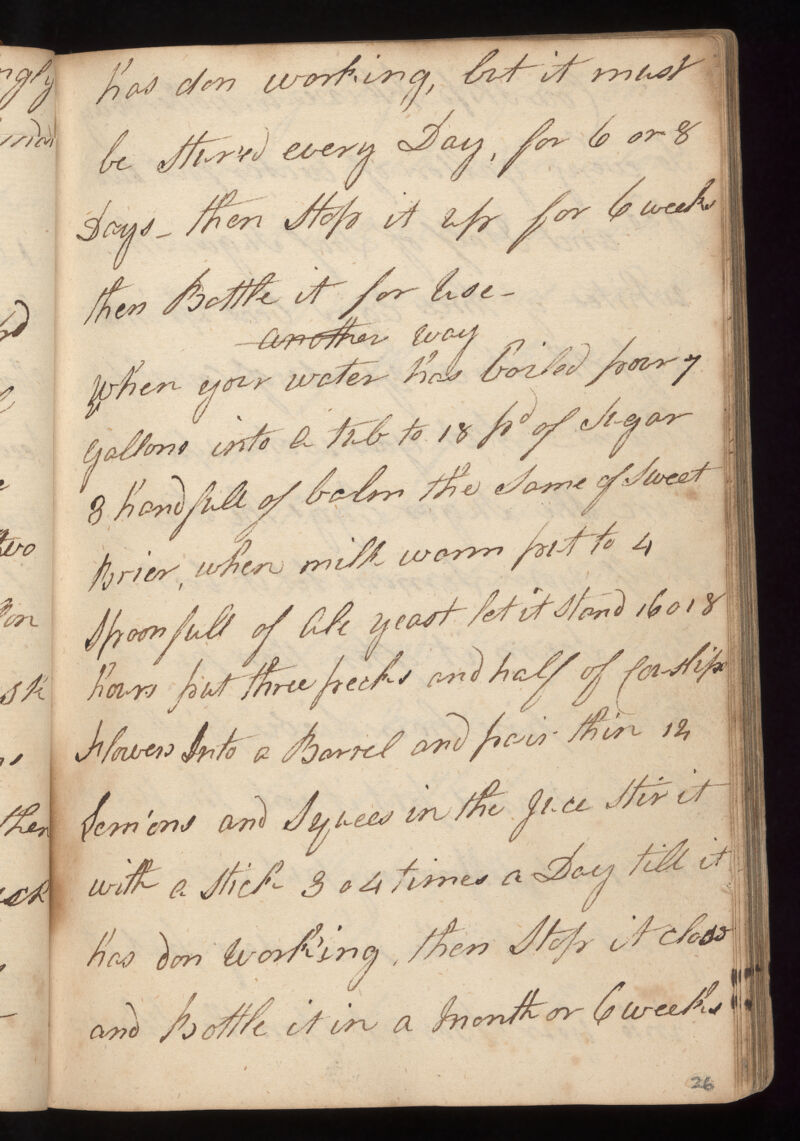 has don working, but it must
be sturred every Day, for 6 or 8
Days - then Stop it up for 6 weeks
then Bottle it for Use -
another way
When your water has boiled pour 7
gallons into a tub to 18 pd of sugar
3 handfull of balm the same of sweet
Brier, when milk warm put to 4
spoonfull of Ale yeast let it stand 16 o 18
hours put three pecks and half of Cowslips
flowers Into a Barrel and pair thin 12
Lemons and Squees in the Juce stir it
with a stick 3 o 4 times a Day till it
has don working, then Stop it close
and Bottle it in a Month or 6 weeks
26
ngly
two
then